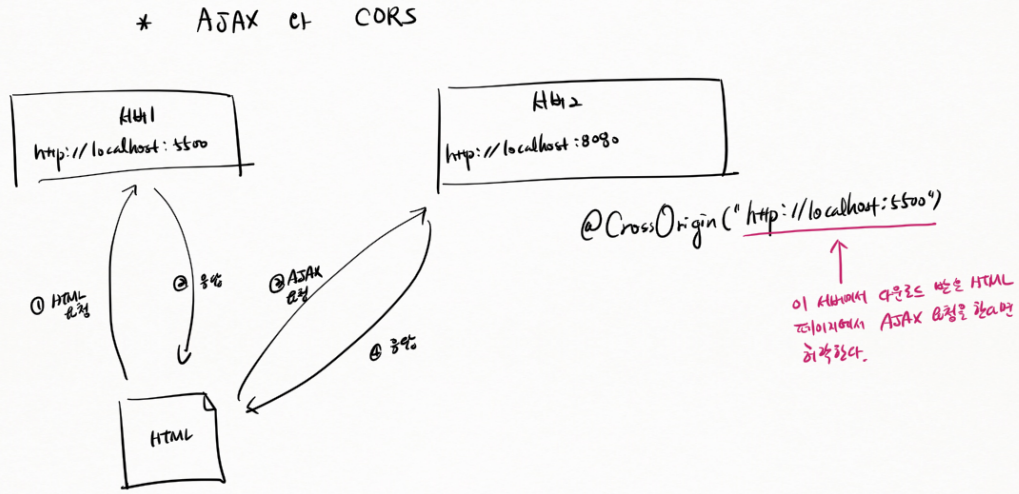 * AJAX 와 CORS
서버1
http://localhost:5500
서버2
http://localhost:8080
@CrossOrigin("http://localhost:5500")
① HTML
요청
② 응답
③ AJAX
요청
④ 응답
이 서버에서 다운로드 받은 HTML
페이지에서 AJAX 요청을 한다면
허락한다.
HTML